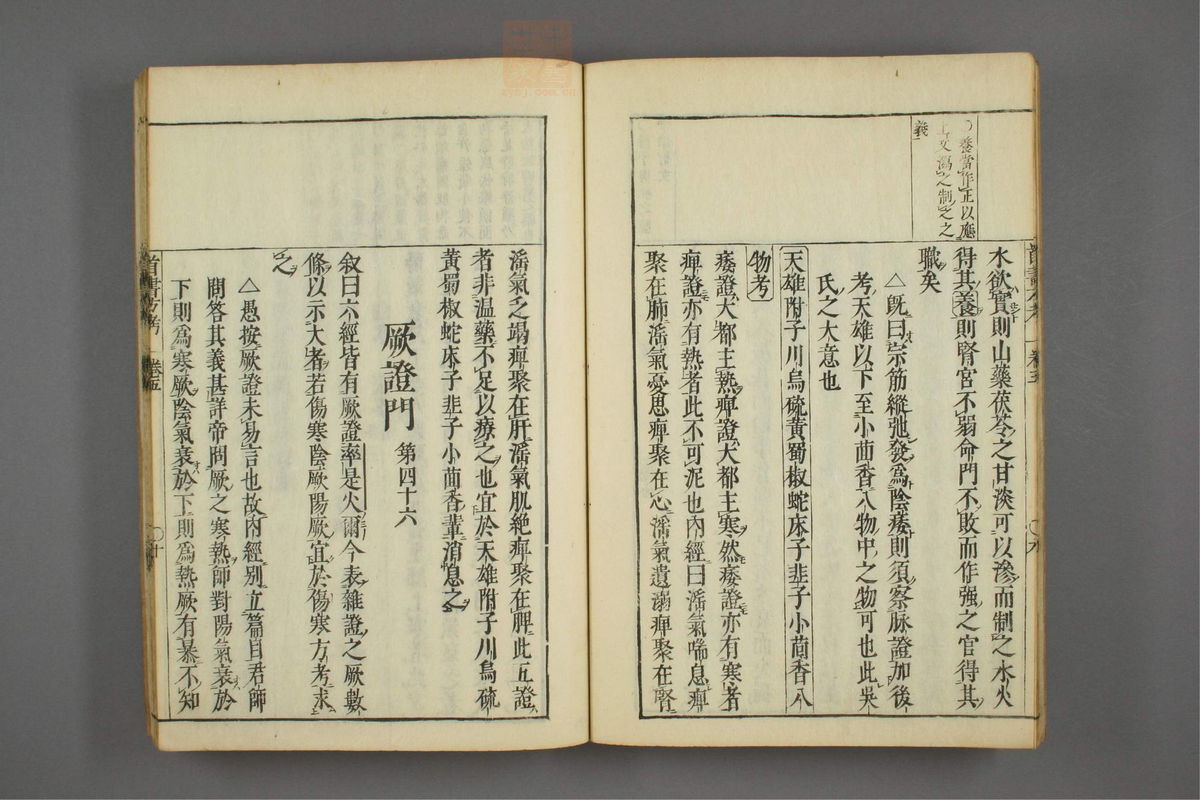 ○養當作正以應
上文瀉之制之之
義
水欲實則山藥茯苓之甘淡可以滲而制之水火
得其養則腎宮不弱命門不敗而作强之官得其
職矣
△既曰宗筋縱弛發爲陰痿則須察脉證加後
考天雄以下至小茴香八物中之物可也此吳
氏之大意也
天雄附子川烏硫黃蜀椒蛇床子韭子小茴香八
物考
痿證大都主熱痺證大都主寒然痿證亦有寒者
痺證亦有熱者此不可泥也內經曰淫氣喘息痺
聚在肺淫氣憂思痺聚在心淫氣遺溺痺聚在腎
淫氣乏竭痺聚在肝淫氣肌絶痺聚在脾此五證
者非温藥不足以療之也宜於天雄附子川烏硫
黃蜀椒蛇床子韭子小茴香輩消息之
厥證門 第四十六
叙曰六經皆有厥證率是火爾今表雜證之厥數
條以示大者若傷寒陰厥陽厥宜於傷寒方考求
之
△愚按厥證未易言也故內經別立篇目君師
問答其義甚詳帝問厥之寒熱師對陽氣衰於
下則爲寒厥陰氣衰於下則爲熱厥有暴不知
首書方考 卷五 ○十